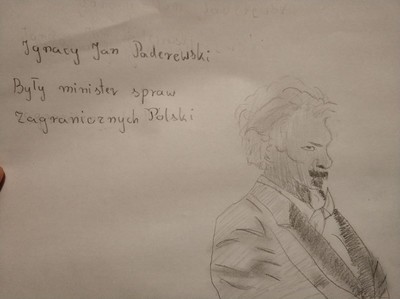 Ignacy Jan Paderewski
Były minister spraw
zagranicznych Polski